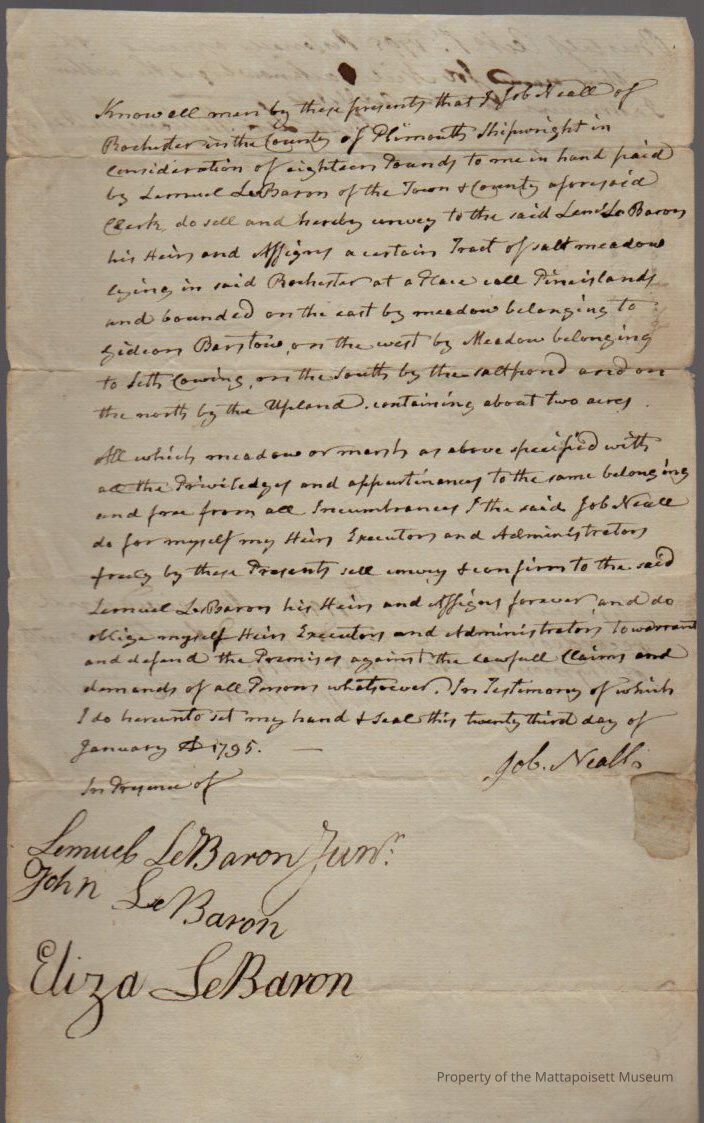 Know all men by these presents that I Job Neall of
Rochester in the County of Plimouth Shipwright in
consideration of eighteen Pounds to me in hand paid
by Lemuel LeBaron of the Town & County aforesaid
Clerk, do sell and hereby convey to the said Leml LeBaron
his Heirs and Assigns a certain Tract of salt meadow
lying in said Rochester at a Place call Pineislands
and bounded on the east by meadow belonging to
Gideon Barstow, on the west by Meadow belonging
to Seth Cowing, on the South by the saltpond and on
the north by the Upland. containing about two acres.
All which meadow or marsh as above specified with
all the Priviledges and appurtinances to the same belonging
and free from all Incumbrances I the said Job Neall
do for myself my Heirs Executors and Administrators
freely by these Presents sell convey & confirm to the said
Lemuel LeBaron his Heirs and Assigns forever, and do
oblige myself Heirs Executors and Administrators to warrant
and defend the Premises against the lawfull Claims and
demands of all Persons whatsoever. In Testimony of which
I do hereunto set my hand & Seal this twenty third day of
January AD 1795. —
Job. Neall
In Presence of
Lemuel LeBaron Junr.
John LeBaron
Eliza LeBaron
Property of the Mattapoisett Museum